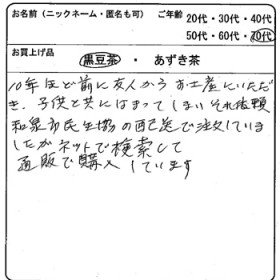 お名前（ニックネーム・匿名も可） ご年齢
20代・30代・40代
50代・60代・70代
お買上げ品
黒豆茶 ・ あずき茶
10年ほど前に友人からお土産にいただ
き、子供と共にはまってしまいそれ以後
和泉市民生協の配送で注文していま
したがネットで検索して
通販で購入しています